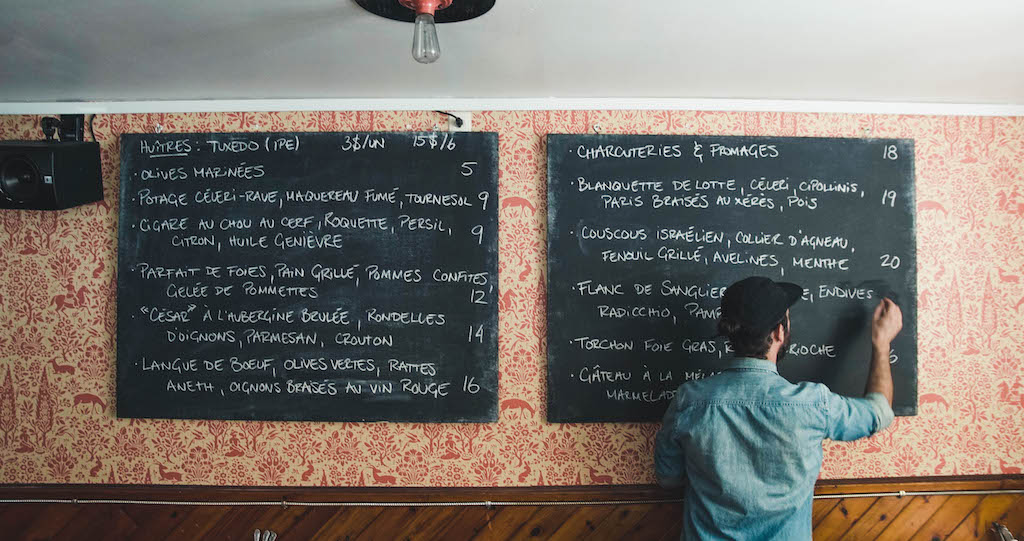 HUÎTRES : TUXEDO (IPE) 3$/UN 15$/6
· OLIVES MARINÉES 5
· POTAGE CÉLERI-RAVE, MAQUEREAU FUMÉ, TOURNESOL 9
· CIGARE AU CHOU AU CERF, ROQUETTE, PERSIL,
CITRON, HUILE GENIÈVRE 9
· PARFAIT DE FOIES, PAIN GRILLÉ, POMMES CONFITES
GELÉE DE POMMETTES 12
· "CÉSAR" À L'AUBERGINE BRULÉE, RONDELLES
D'OIGNONS, PARMESAN, CROUTON 14
· LANGUE DE BOEUF, OLIVES VERTES, RATTES
ANETH, OIGNONS BRAISÉS AU VIN ROUGE 16
· CHARCUTERIES & FROMAGES 18
· BLANQUETTE DE LOTTE, CÉLERI, CIPOLLINIS,
PARIS BRAISÉS AU XÉRÈS, POIS 19
· COUSCOUS ISRAÉLIEN, COLLIER D'AGNEAU,
FENOUIL GRILLÉ, AVELINES, MENTHE 20
· FLANC DE SANGLIER ENDIVES
RADICCHIO,
· TORCHON FOIE GRAS,
· GÂTEAU À LA